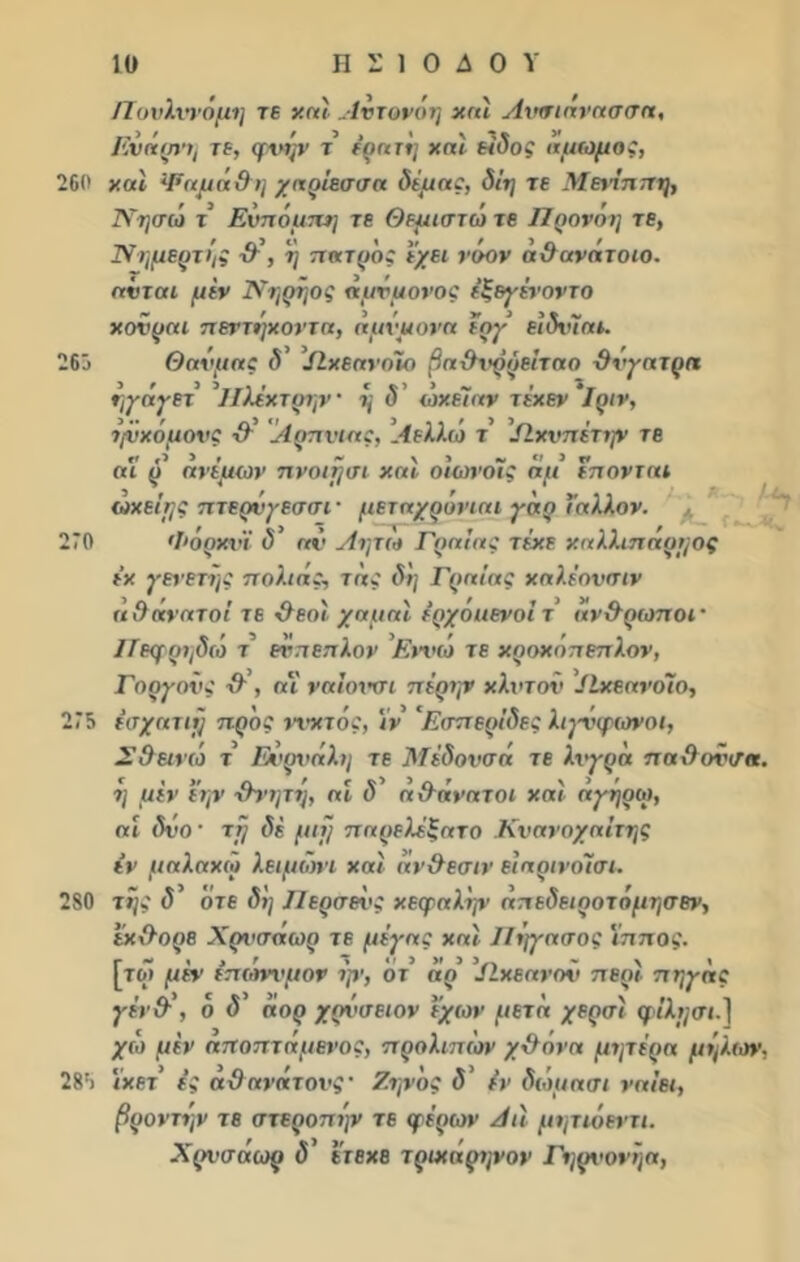 10 ΗΣΙΟΔΟΥ
Πουλυνόμη τε καὶ Αὐτονόη καὶ Λυσιάνασσα,
Εὐάρνη τε, φυήν τ' ἐρατὴ καὶ εἶδος ἄμωμος,
260 καὶ Ψαμάθη χαρίεσσα δέμας, δίη τε Μενίππη,
Νησώ τ' Εὐπόμπη τε Θεμιστώ τε Προνόη τε,
Νημερτής θ', ἣ πατρὸς ἔχει νόον ἀθανάτοιο.
αὗται μὲν Νηρῆος ἀμύμονος ἐξεγένοντο
κοῦραι πεντήκοντα, ἀμύμονα ἔργ' εἰδυῖαι.
265 Θαύμας δ' Ὠκεανοῖο βαθυῤῥείταο θύγατρα
ἠγάγετ' Ἠλέκτρην· ἣ δ' ὠκεῖαν τέκεν Ἶριν,
ἠϋκόμους θ' Ἁρπυίας, Ἀελλώ τ' Ὠκυπέτην τε
αἵ ῥ' ἀνέμων πνοιῇσι καὶ οἰωνοῖς ἅμ' ἕπονται
ὠκείῃς πτερύγεσσι· μεταχρόνιαι γὰρ ἴαλλον.
270 Φόρκυϊ δ' αὖ Λητὼ Γραίας τέκε καλλιπάρῃος
ἐκ γενετῆς πολιάς, τὰς δὴ Γραίας καλέουσιν
ἀθάνατοί τε θεοὶ χαμαὶ ἐρχόμενοί τ' ἄνθρωποι·
Πεφρηδώ τ' εὔπεπλον Ἐννώ τε κροκόπεπλον,
Γοργούς θ', αἳ ναίουσι πέρην κλυτοῦ Ὠκεανοῖο,
275 ἐσχατιῇ πρὸς νυκτός, ἵν' Ἑσπερίδες λιγύφωνοι,
Σθεινώ τ' Εὐρυάλη τε Μέδουσά τε λυγρὰ παθοῦσα.
ἣ μὲν ἔην θνητή, αἳ δ' ἀθάνατοι καὶ ἀγήρῳ,
αἱ δύο· τῇ δὲ μιῇ παρελέξατο Κυανοχαίτης
ἐν μαλακῷ λειμῶνι καὶ ἄνθεσιν εἰαρινοῖσι.
280 τῆς δ' ὅτε δὴ Περσεὺς κεφαλὴν ἀπεδειροτόμησεν,
ἔκθορε Χρυσάωρ τε μέγας καὶ Πήγασος ἵππος.
[τῷ μὲν ἐπώνυμον ἦν, ὅτ' ἄρ' Ὠκεανοῦ περὶ πηγὰς
γένθ', ὁ δ' ἄορ χρύσειον ἔχων μετὰ χερσὶ φίλῃσι.]
χὠ μὲν ἀποπτάμενος, προλιπὼν χθόνα μητέρα μήλων,
285 ἵκετ' ἐς ἀθανάτους· Ζηνὸς δ' ἐν δώμασι ναίει,
βροντήν τε στεροπήν τε φέρων Διῒ μητιόεντι.
Χρυσάωρ δ' ἔτεκε τρικάρηνον Γηρυονῆα,